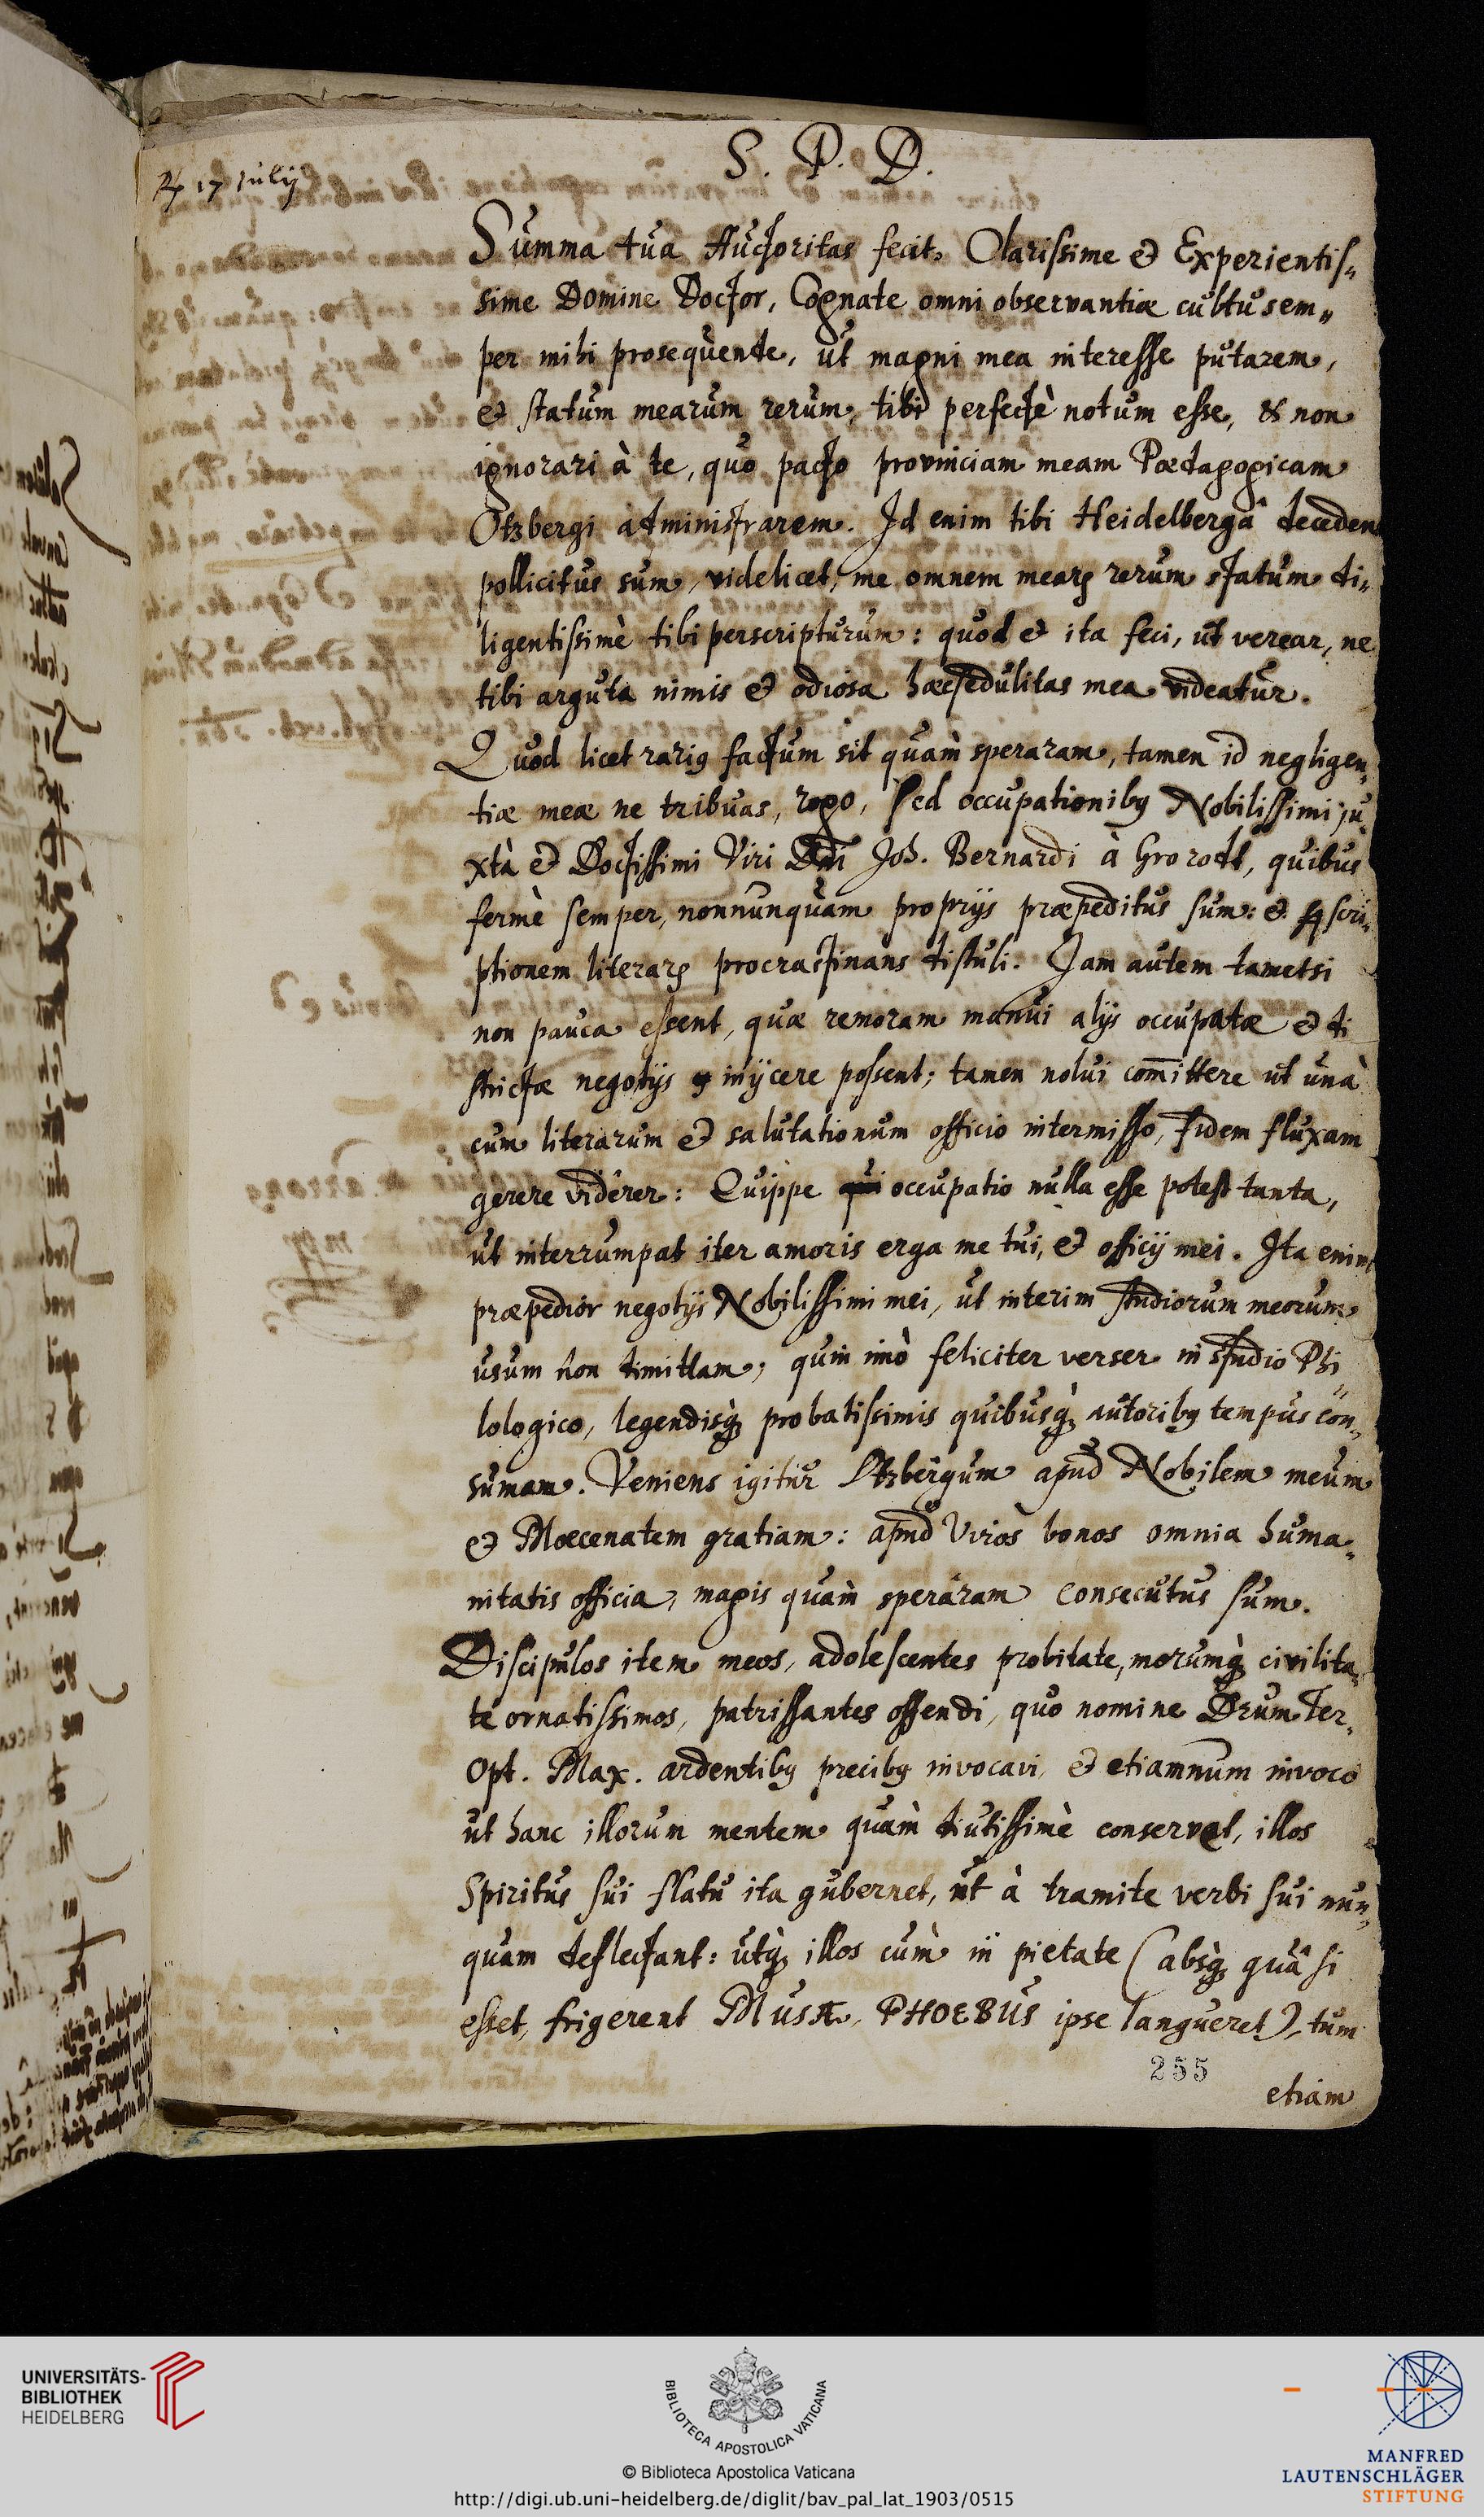 S. P. D.
R 17 Julij
Summa tua Auctoritas fecit, Clarissime & Experientis„
sime Domine Doctor, Cognate omni observantiæ cultu sem„
per mihi prosequende, ut magni mea interesse putarem,
& statum mearum rerum tibi perfectè notum esse, & non
ignorari à te, quo pacto provinciam meam Pædagogicam
Otzbergi administrarem. Id enim tibi Heidelbergâ deceden
pollicitus sum, videlicet, me omnem mearꝝ rerum statum di„
ligentissimè tibi perscripturum: quod & ita feci, ut verear, ne
tibi arguta nimis & odiosa hæc sedulitas mea videatur.
Quod licet rariꝰ factum sit quàm speraram, tamen id negligen„
tiæ meæ ne tribuas, rogo, sed occupationibꝰ Nobilissimi ju„
xtà & Doctissimi Viri Dn̅i Joh. Bernardi à Grorodt, quibus
fermè semper, nonnunquam proprijs præpeditus sum: & scri„
ptionem literarꝝ procrastinans distuli. Jam autem tametsi
non pauca essent, quæ remoram manui alijs occupatæ & di
strictæ negotijs inijcere possent; tamen nolui com̅ittere ut unà
cum literarum & salutationum officio intermisso, fidem fluxam
gerere vidêrer: Quippe qui occupatio nulla esse potest tanta,
ut interrumpat iter amoris erga me tui, & officij mei. Ita enim
præpedior negotijs Nobilissimi mei, ut interim studiorum meorum
usum non dimittam, quin imò feliciter verser in studio Phi„
lologico, legendisqꝫ probatissimis quibusqꝫ autoribꝰ tempus con„
sumam. Veniens igitur Otzbergum apud Nobilem meum
& Mœcenatem gratiam: apud Viros bonos omnia huma„
nitatis officia, magis quàm sperâram consecutus sum.
Discipulos item meos, adolescentes probitate, morumqꝫ civilita„
te ornatissimos, patrissantes offendi, quo nomine Deum Ter„
Opt. Max. ardentibꝰ precibꝰ invocavi, & etiamnum invoco
ut hanc illorum mentem quàm diutissimè conservet, illos
Spiritus sui flatu ita gubernet, ut à tramite verbi sui nun„
quam deflectant: utqꝫ illos cùm in pietate (absqꝫ quâ si
esset, frigerent MUSÆ, PHOEBUS ipse langueret), tum
255
etiam
UNIVERSITÄTS-
BIBLIOTHEK
HEIDELBERG
BIBLIOTECA APOSTOLICA VATICANA
© Biblioteca Apostolica Vaticana
http://digi.ub.uni-heidelberg.de/diglit/bav_pal_lat_1903/0515
MANFRED
LAUTENSCHLÄGER
STIFTUNG